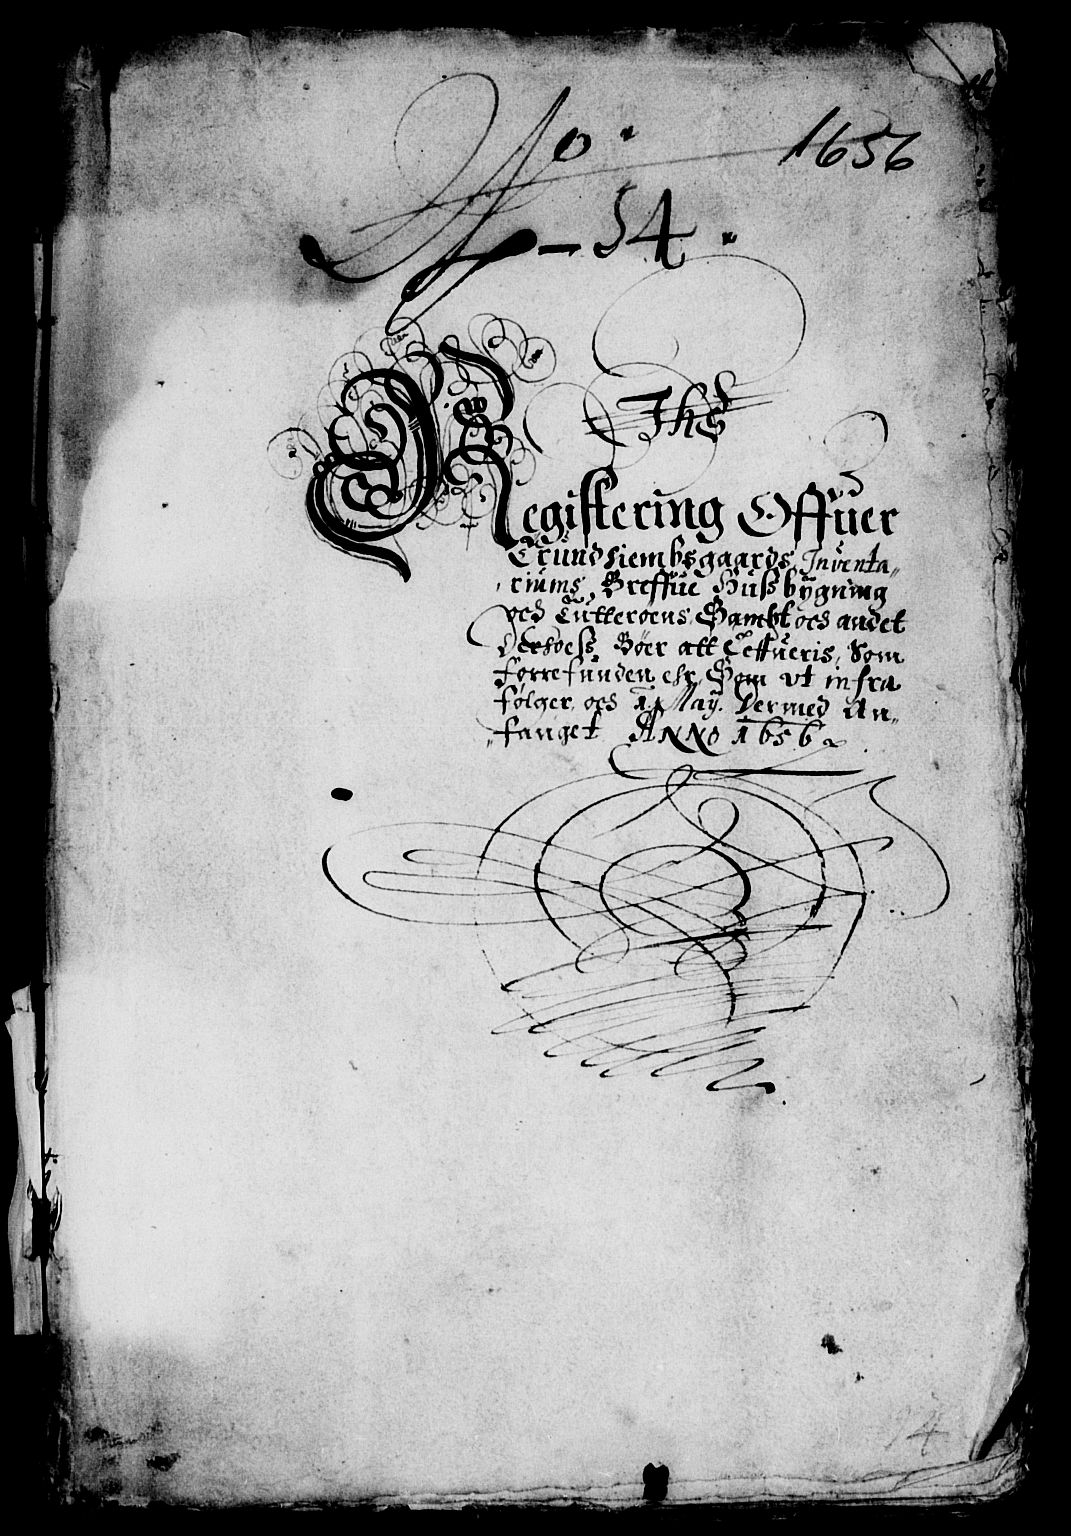 No. 1656
– 54.
Jhs
Registering Offuer
Trundhiembsgaards Inventa„
riums, Breffue Husbygning
ved Tutteroens, Sampt oes andet
derhoess, Bør att Leffueris, Som
forrefunden ehr, Som vt infra
følger, oes 1. May. Dermed An„
„fanget ANNO 1656
14